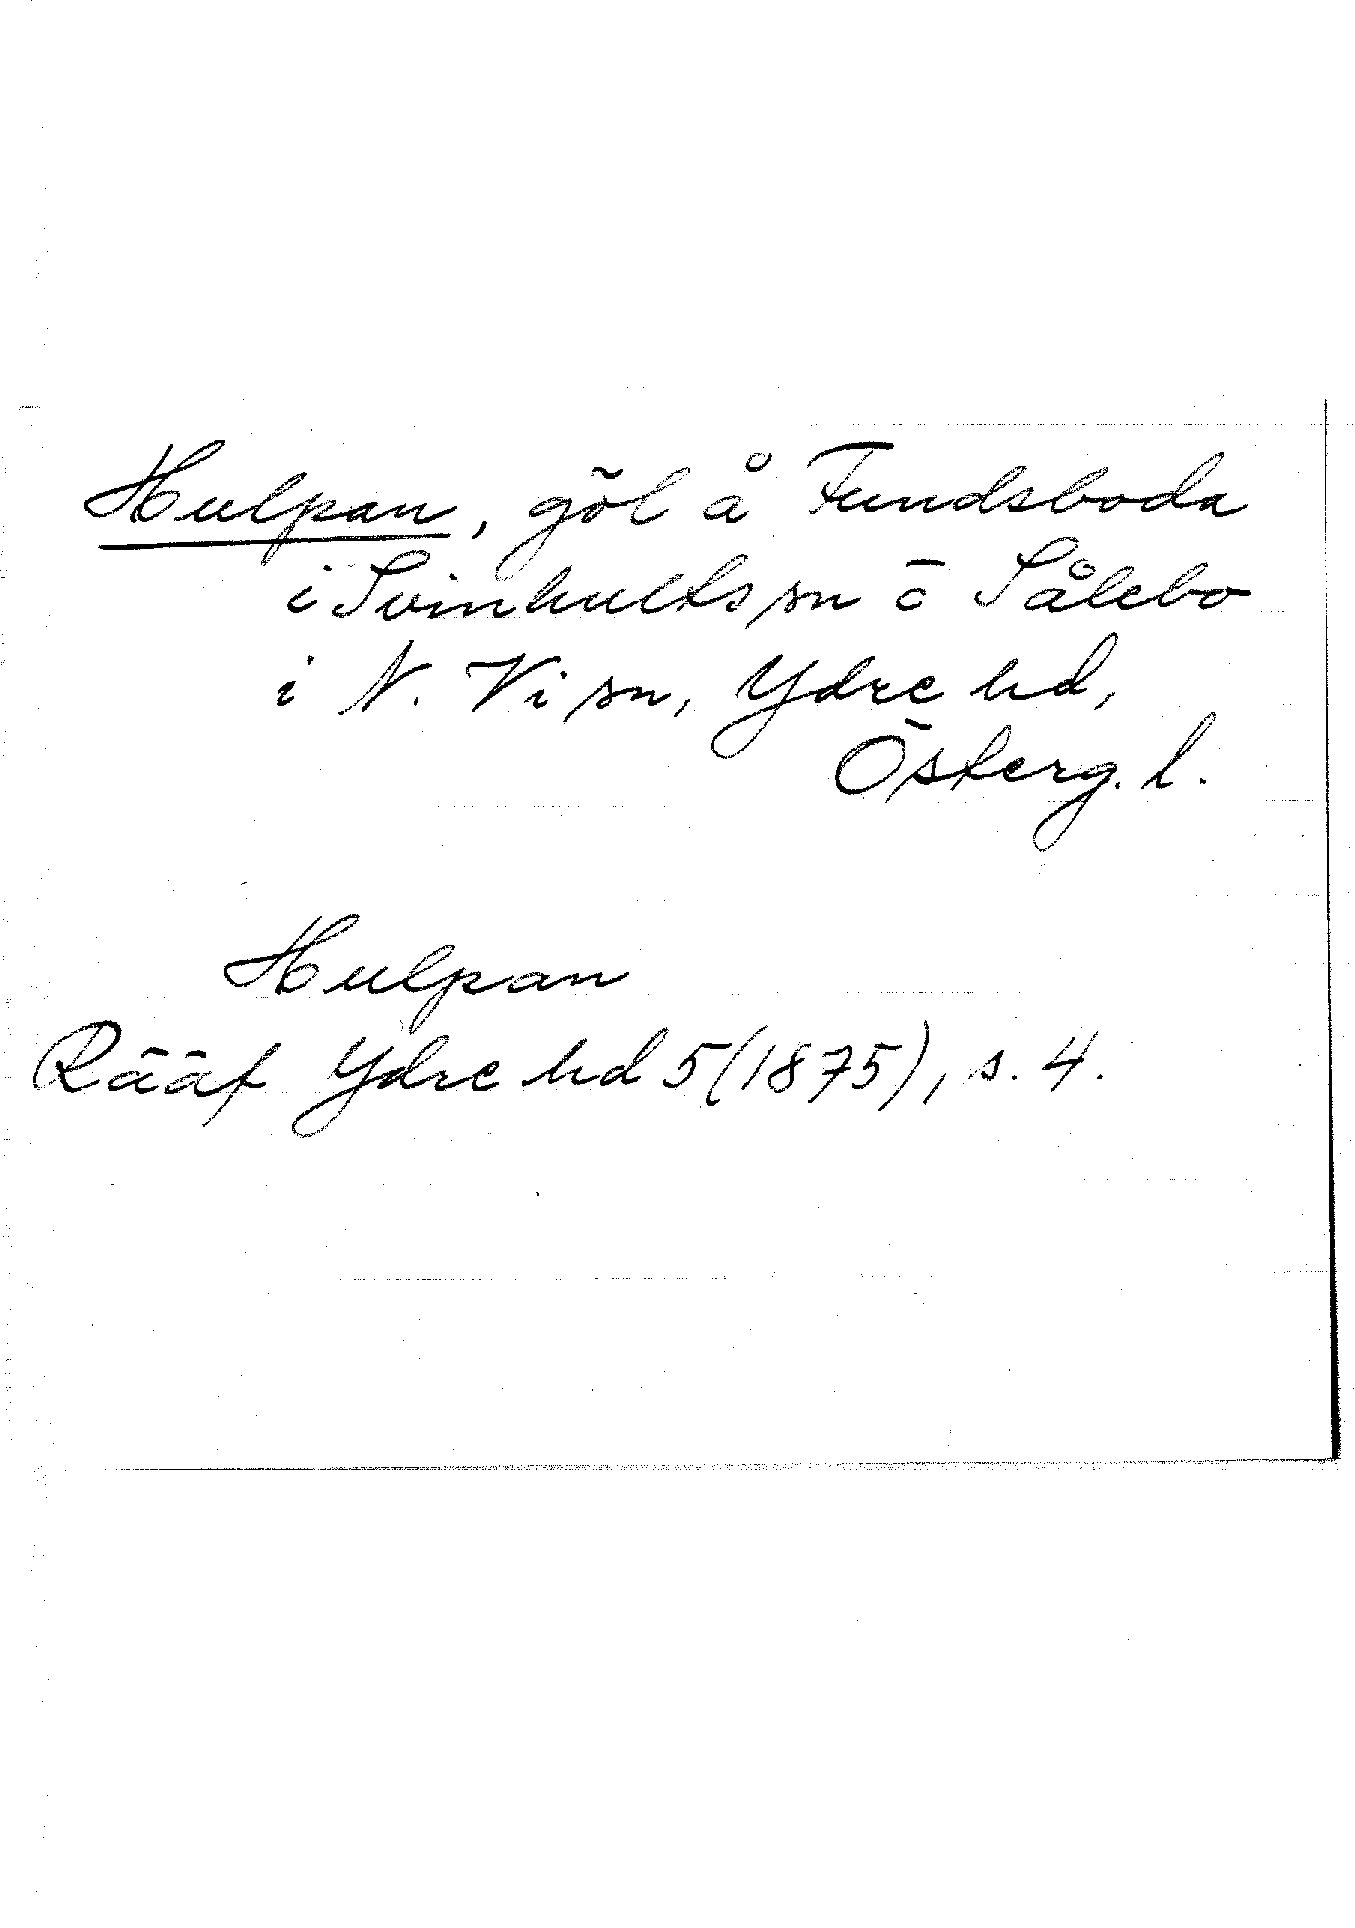 Hulpan, göl å Fundsboda
i Svinhults sn o Sålebo
i N. Vi sn, Ydre hd,
Österg. l.
Hulpan
Rääf Ydre hd 5 (1875), s. 4.